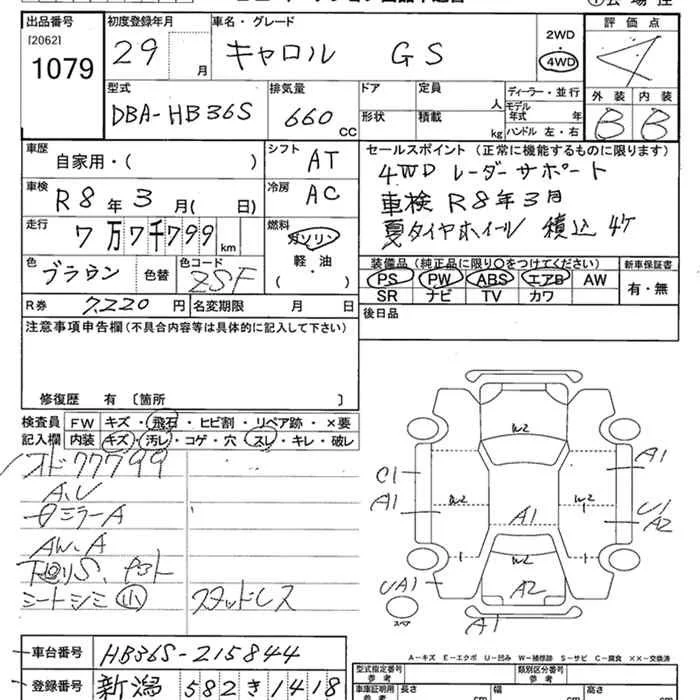 出品番号
[2062]
1079
初度登録年月
29 月
車名・グレード
キャロル GS
2WD
・
4WD
評価点
4
型式
DBA-HB36S
排気量
660 CC
ドア
定員 人
形状
積載 kg
ディーラー・並行
モデル年式 年
ハンドル 左・右
外装 内装
B B
車歴
自家用・( )
シフト
AT
車検
R8年3月( 日)
冷房
AC
走行
7万7千799km
燃料
ガソリン
軽・油
( )
色
ブラウン
色替
色コード
ZSF
R券 7,220円
名変期限 月 日
セールスポイント (正常に機能するものに限ります)
4WD レーダーサポート
車検 R8年3月
夏タイヤホイール 積込 4ケ
装備品(純正品に限り〇をつけてください)
PS PW ABS エアB AW
SR ナビ TV カワ
新車保証書
有・無
後日品
注意事項申告欄(不具合内容等は具体的に記入して下さい)
修復歴 有〔箇所 〕
検査員記入欄
FW キズ・飛石・ヒビ割・リペア跡・×要
内装 キズ・汚レ・コゲ・穴・スレ・キレ・破レ
オド77799
A,U
ミラーA
AW,A
下回りS、
シートシミ 小
スタッドレス
W2
C1
A1
W2
W2
A1
A1
U1
A2
UA1
A2
A1
スペア
A-キズ E-エクボ U-凹み W-補修跡 S-サビ C-腐食 ××-交換済
車台番号 HB36S-215844
登録番号 新潟 582 き 1418
型式指定番号 参考
類別区分番号 参考
車庫証明用 参考
長さ cm
幅 cm
高さ cm